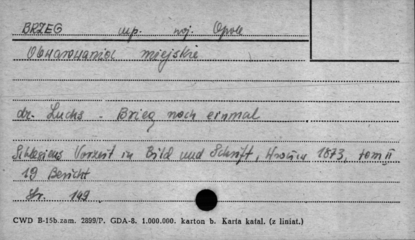 BRZEG woj. Opole
Obwarowania miejskie
dr. Luchs - Brieg noch einmal
Schlesiens Vorzeit in Bild und Schrift, 1873, tom II
19 Bericht
Str. 149
CWD B-15b.zam. 2899/P. GDA-8. 1.000.000. karton b. Karta katal. (z liniat.)